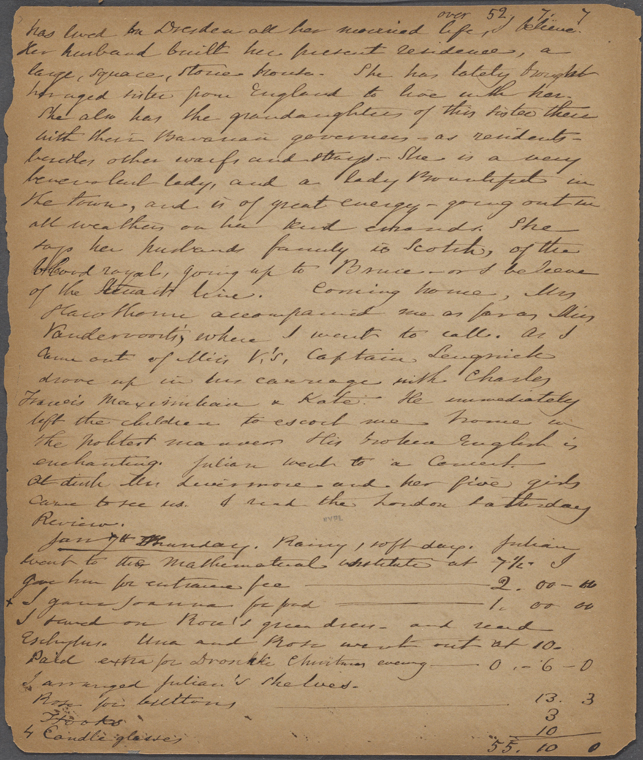 over 52, 7. 7
has lived in Dresden all her married life, I believe.
Her husband built her present residence, a
large, square, stone house. She has lately brought
her aged sister from England to live with her.
She also has the grandaughters of this sister there
with their Bavarian governess - as residents -
besides other waifs and strays - She is a very
benevolent lady, and a Lady Bountiful in
the town, and is of great energy - going out in
all weathers on her kind errands. She
says her husbands family is Scotch, of the
blood royal, going up to Bruce - or I believe
of the Stuart line. Coming home, Mrs
Hawthorne accompanied me as far as Miss
Vandervoort's, where I went to call. As I
came out of Miss V.'s, Captain Lengnick
drove up in his carriage with Charles
Francis Maximilian & Kate. He immediately
left the children to escort me home in
the politest manner. His broken English is
enchanting. Julian went to a Concert.
At dusk Mrs Livermore and her five girls
came to see us. I read the London Saturday
Review.
Jan 7th Thursday. Rainy, soft day. Julian
went to the Mathematical institute at 7½. I
gave him for entrance fee 2. 00 - 00
x I gave Joanna for food 1. 00 00
I sewed on Rose's green dress - and read
Eschylus. Una and Rose went out at 10.
Paid extra for Droschke Christmas evening 0 . - 6 - 0
I arranged Julian's shelves.
Rose for buttons 13. 3
Hooks 3
4 Candle glasses 10
55. 10 0